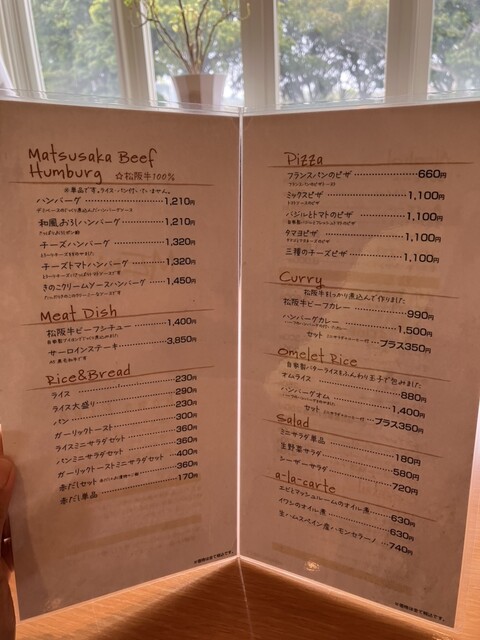 Matsusaka Beef
Humburg ☆松阪牛100%
※単品です。ライス・パン付いていません。
ハンバーグ 1,210円
和風おろしハンバーグ 1,210円
チーズハンバーグ 1,320円
チーズトマトハンバーグ 1,320円
きのこクリームソースハンバーグ 1,450円
Meat Dish
松阪牛ビーフシチュー 1,400円
サーロインステーキ 3,850円
Rice&Bread
ライス 230円
ライス大盛り 290円
パン 230円
ガーリックトースト 300円
ライスミニサラダセット 360円
パンミニサラダセット 360円
ガーリックトーストミニサラダセット 400円
赤だしセット 360円
赤だし単品 170円
※価格は全て税込です。
Pizza
フランスパンのピザ 660円
ミックスピザ 1,100円
バジルとトマトのピザ 1,100円
タマヨピザ 1,100円
三種のチーズピザ 1,100円
Curry
松阪牛をじっかり煮込んで作りました
松阪牛ビーフカレー 990円
ハンバーグカレー 1,500円
セット プラス350円
Omelet Rice
自家製バターライスをふんわり玉子で包みました
オムライス 880円
ハンバーグオム 1,400円
セット プラス350円
Salad
ミニサラダ単品 180円
生野菜サラダ 580円
シーザーサラダ 720円
a-la-carte
エビとマッシュルームのオイル煮 630円
イワシのオイル煮 630円
生ハムスペイン産ハモンセラーノ 740円
※価格は全て税込です。